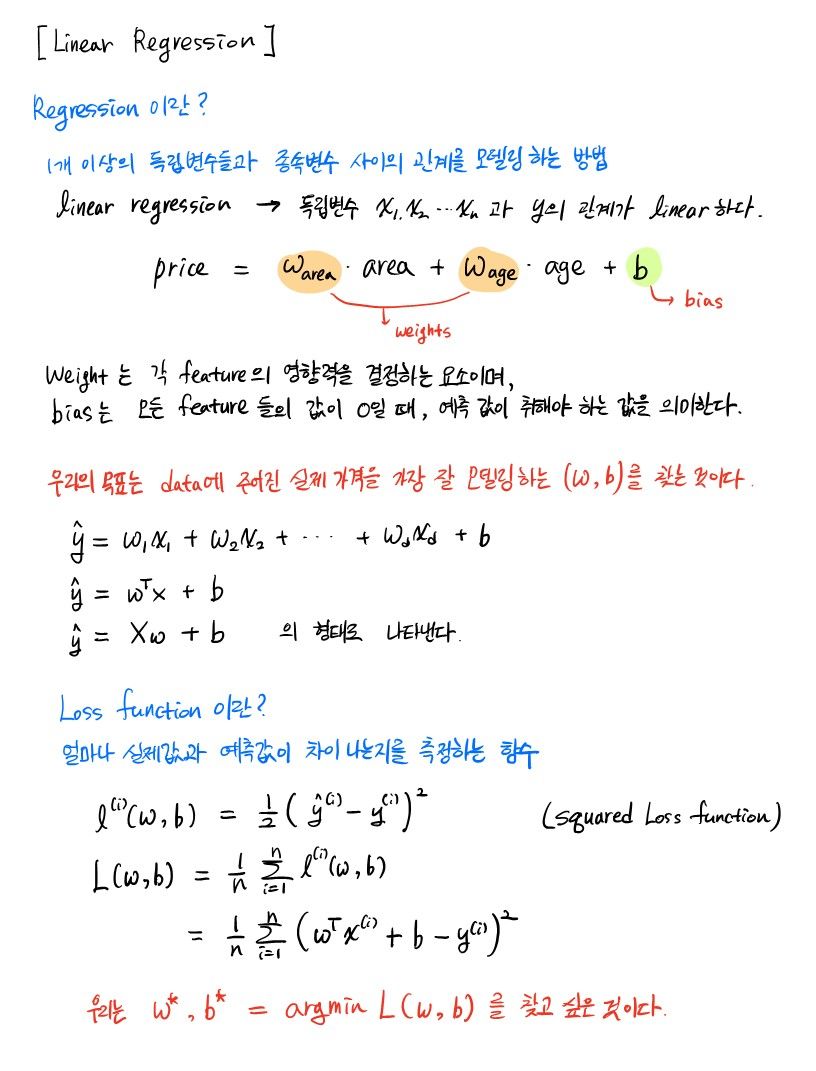 [Linear Regression]
Regression 이란?
1개 이상의 독립변수들과 종속변수 사이의 관계를 모델링 하는 방법
linear regression → 독립변수 x₁, x₂ ⋯ xₙ 과 y의 관계가 linear 하다.
price = w_area · area + w_age · age + b
bias
weights
Weight 는 각 feature의 영향력을 결정하는 요소이며,
bias는 모든 feature 들의 값이 0일 때, 예측 값이 취해야 하는 값을 의미한다.
우리의 목표는 data에 주어진 실제 가격을 가장 잘 모델링하는 (w, b)를 찾는 것이다.
ŷ = w₁x₁ + w₂x₂ + ⋯ + w_d x_d + b
ŷ = wᵀx + b
ŷ = Xw + b 의 형태로 나타낸다.
Loss function 이란?
얼마나 실제값과 예측값이 차이 나는지를 측정하는 함수
l⁽ⁱ⁾(w, b) = 1/2 (ŷ⁽ⁱ⁾ - y⁽ⁱ⁾)² (squared Loss function)
L(w, b) = 1/n Σ_{i=1}^{n} l⁽ⁱ⁾(w, b)
= 1/n Σ_{i=1}^{n} (wᵀx⁽ⁱ⁾ + b - y⁽ⁱ⁾)²
우리는 w*, b* = argmin L(w, b) 를 찾고 싶은 것이다.